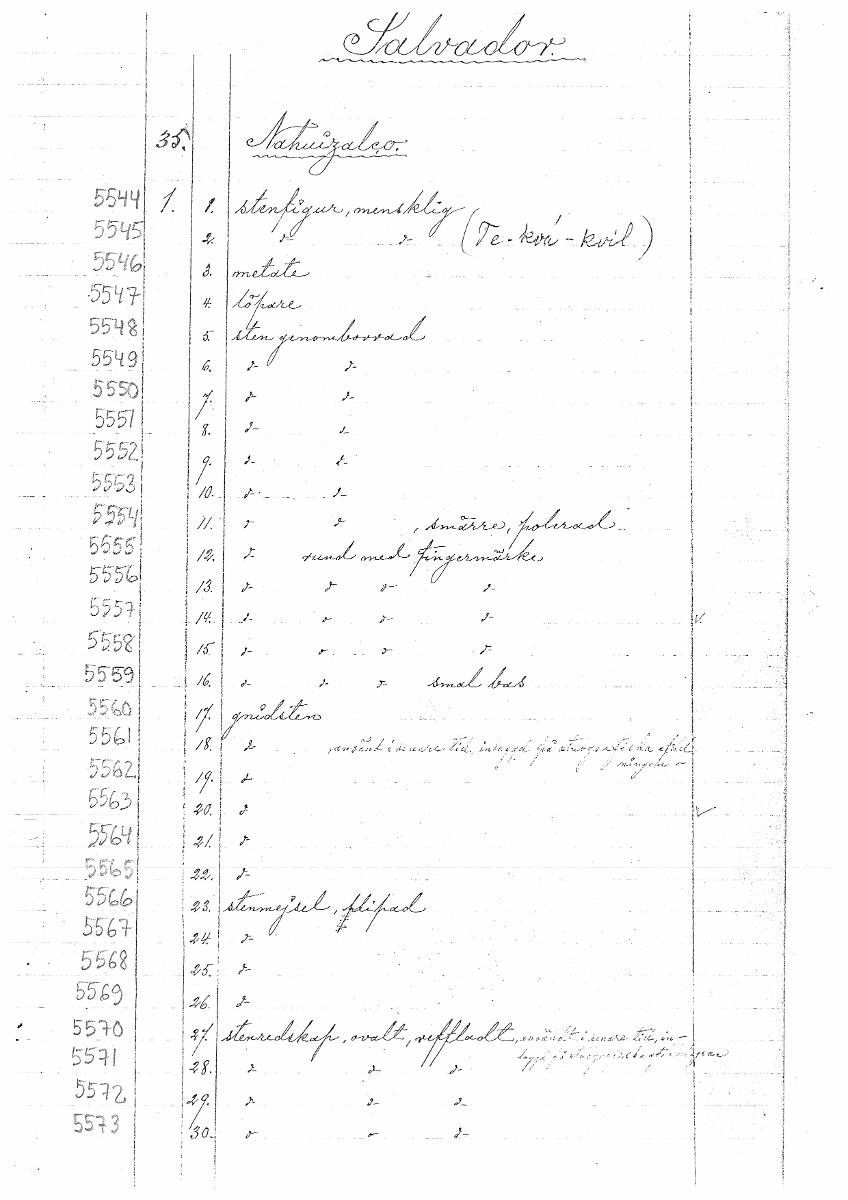 Salvador.
35. Nahuizalco.
5544 1. 1. stenfigur, mensklig
5545 2. d- d- (Te-kvá-kvil)
5546 3. metate
5547 4. löpare
5548 5. sten genomborrad
5549 6. d- d-
5550 7. d- d-
5551 8. d- d-
5552 9. d- d-
5553 10. d- d-
5554 11. d- d- , smärre, polerad
5555 12. d- rund med fingermärke
5556 13. d- d- d- d-
5557 14. d- d- d- d- v.
5558 15. d- d- d- d-
5559 16. d- d- d- smal bas
5560 17. gnidsten
5561 18. d- , använt i senare tid, inlaggd på
5562 19. d-
5563 20. d- v
5564 21. d-
5565 22. d-
5566 23. stenmejsel, slipad
5567 24. d-
5568 25. d-
5569 26. d-
5570 27. stenredskap, ovalt, reffladt, användt i senare tid, in-
5571 28. d- d- d- laggd på
5572 29. d- d- d-
5573 30. d- d- d-